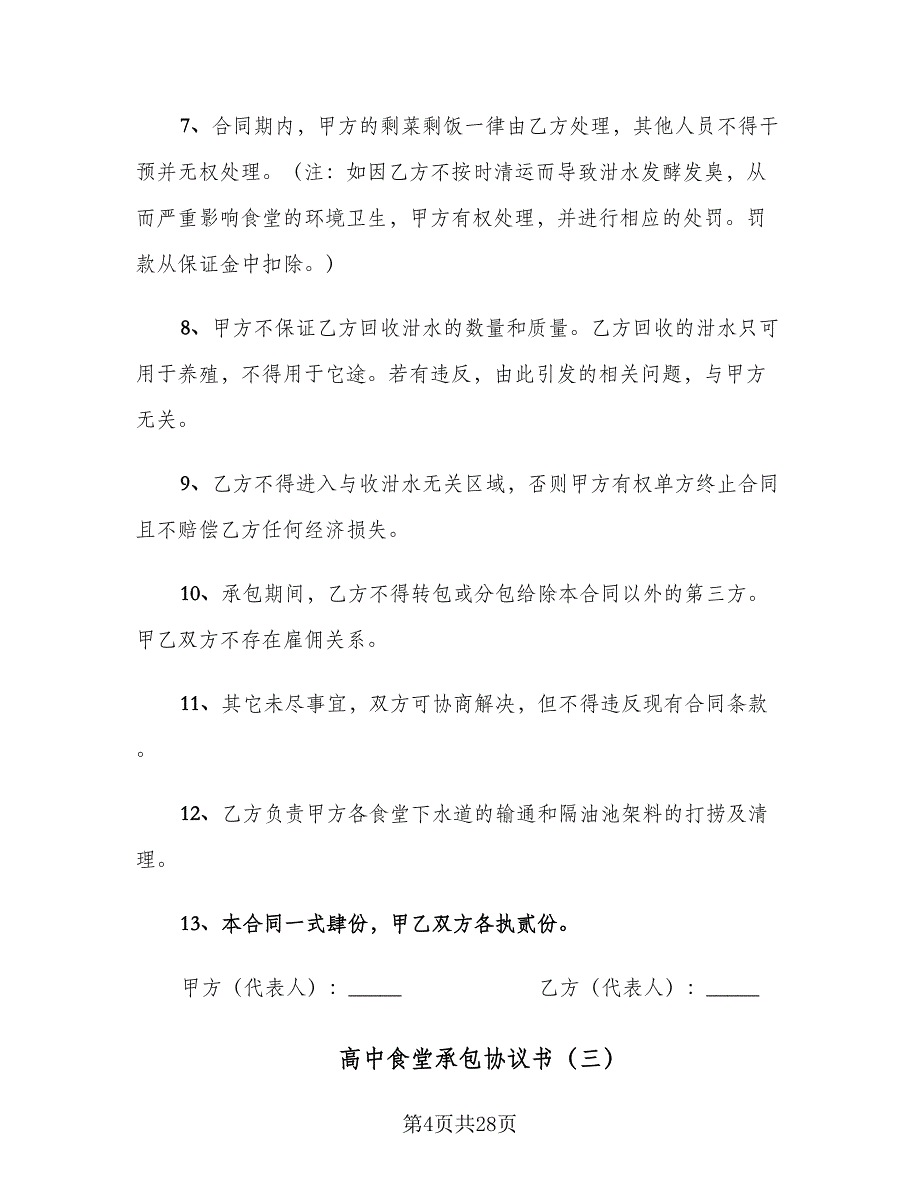 7、合同期内，甲方的剩菜剩饭一律由乙方处理，其他人员不得干
预并无权处理。（注：如因乙方不按时清运而导致泔水发酵发臭，从
而严重影响食堂的环境卫生，甲方有权处理，并进行相应的处罚。罚
款从保证金中扣除。）
8、甲方不保证乙方回收泔水的数量和质量。乙方回收的泔水只可
用于养殖，不得用于它途。若有违反，由此引发的相关问题，与甲方
无关。
9、乙方不得进入与收泔水无关区域，否则甲方有权单方终止合同
且不赔偿乙方任何经济损失。
10、承包期间，乙方不得转包或分包给除本合同以外的第三方。
甲乙双方不存在雇佣关系。
11、其它未尽事宜，双方可协商解决，但不得违反现有合同条款
。
12、乙方负责甲方各食堂下水道的输通和隔油池架料的打捞及清
理。
13、本合同一式肆份，甲乙双方各执贰份。
甲方（代表人）：_____ 乙方（代表人）：_____
高中食堂承包协议书（三）
第4页共28页